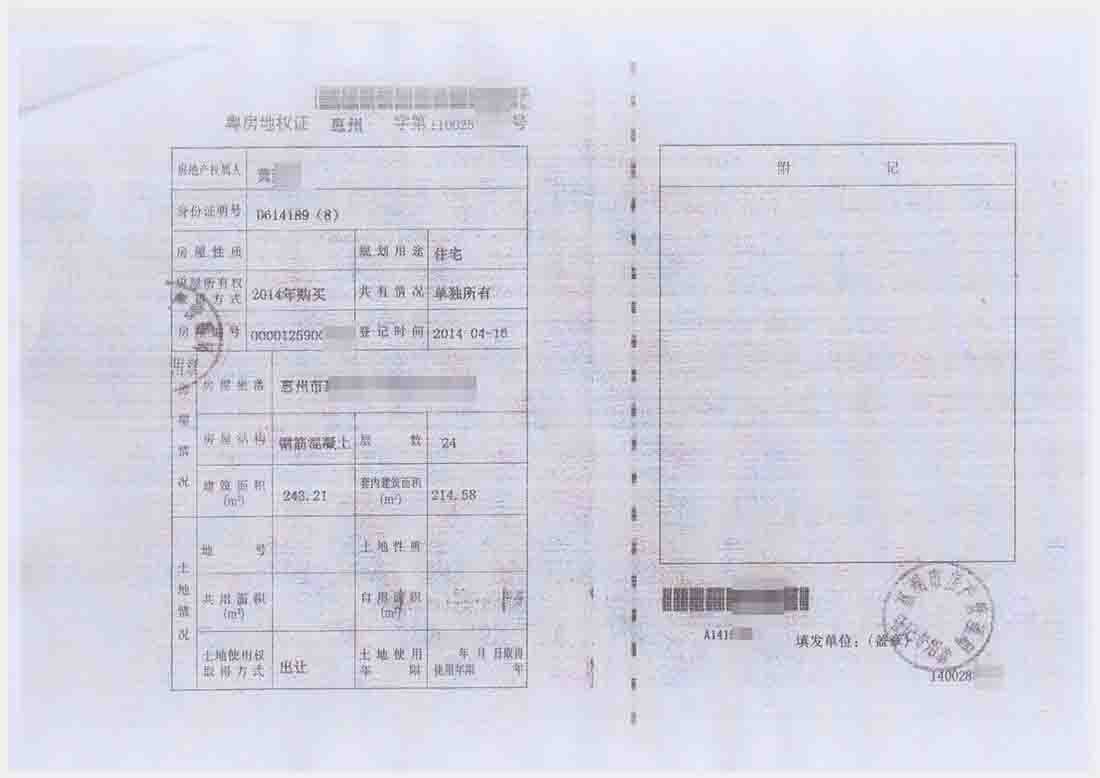 粤房地权证 惠州 字第 110025 号
房地产权属人 黄
身份证明号 D614189（8）
房屋性质 规划用途 住宅
房屋所有权取得方式 2014年购买 共有情况 单独所有
房屋编号 0000125900 登记时间 2014-04-16
房屋情况
房屋坐落 惠州市
房屋结构 钢筋混凝土 层数 24
建筑面积(m²) 243.21 套内建筑面积(m²) 214.58
土地情况
地号 土地性质
共用面积(m²) 自用面积(m²)
土地使用权取得方式 出让 土地使用年限 年 月 日取得
使用年限 年
附 记
A141
填发单位：（盖章）
140028